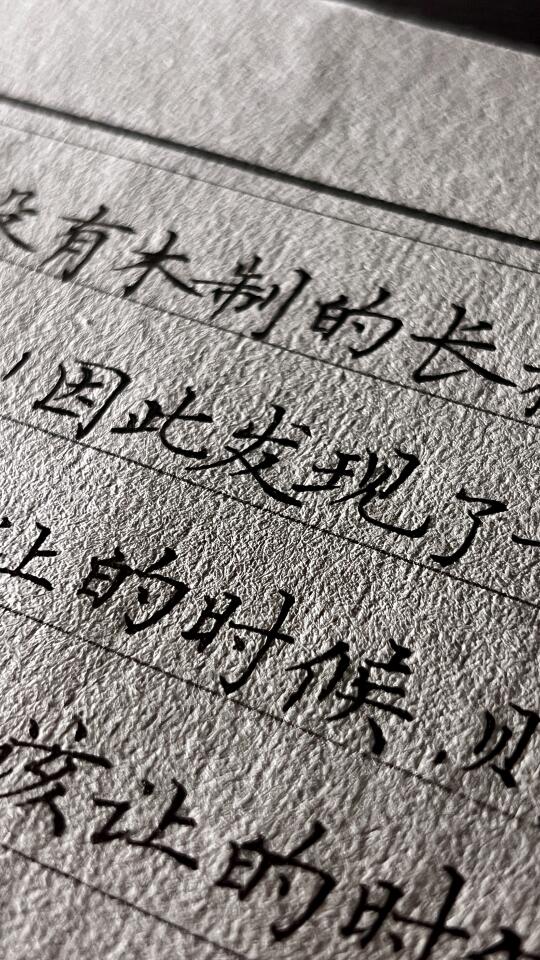 没有木制的长
，因此发现了一
让的时候，则
该让的时